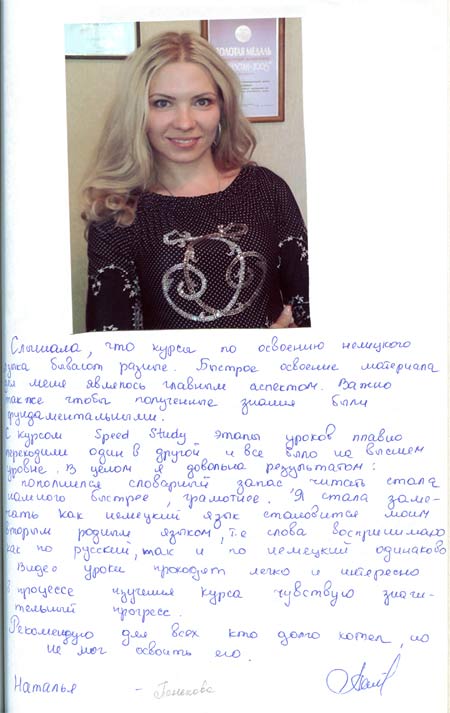 ЗОЛОТАЯ МЕДАЛЬ
Слышала, что курсы по освоению немецкого
языка бывают разные. Быстрое освоение материала
для меня являлось главным аспектом. Важно
также чтобы полученные знания были
фундаментальными.
С курсом Speed Study - этапы уроков плавно
переходили один в другой и все было на высшем
уровне. В целом я довольна результатом:
пополнился словарный запас, читать стала
намного быстрее, грамотнее. Я стала заме-
чать как немецкий язык становится моим
вторым родным языком, т.е слова воспринимаю
как по русский, так и по немецкий одинаково
Видео уроки проходят легко и интересно
в процессе изучения курса чувствую значи-
тельный прогресс.
Рекомендую для всех кто долго хотел, но
не мог освоить его.
Наталья -